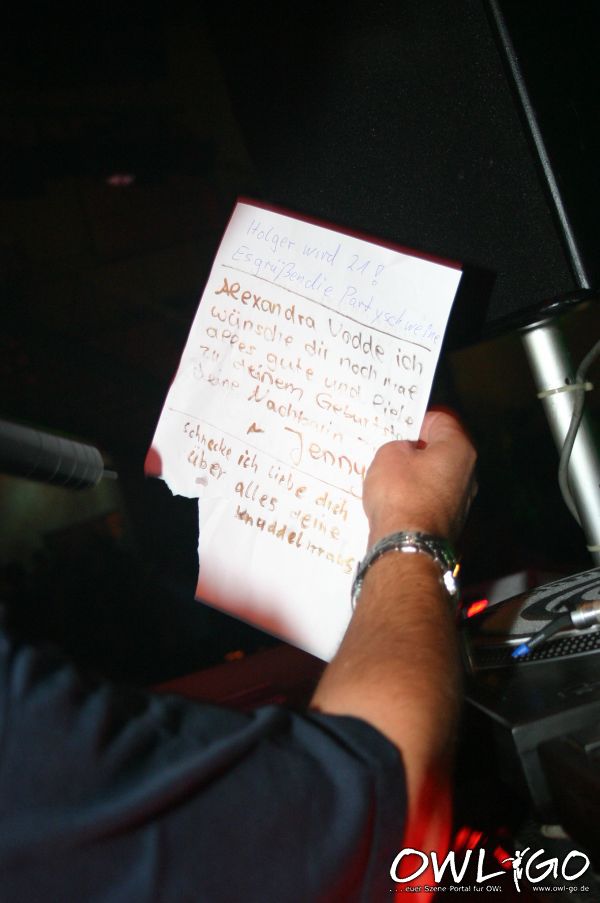 Holger wird 21!
Es grüßen die Partyschweine
Alexandra Vodde ich
wünsche dir noch mal
alles gute und Viele
zu deinem Geburtstag
deine Nachbarin -
~ Jenny
Schnecke ich liebe dich
über alles deine
Knuddelmaus
OWL GO
. . . euer Szene Portal für OWL
www.owl-go.de